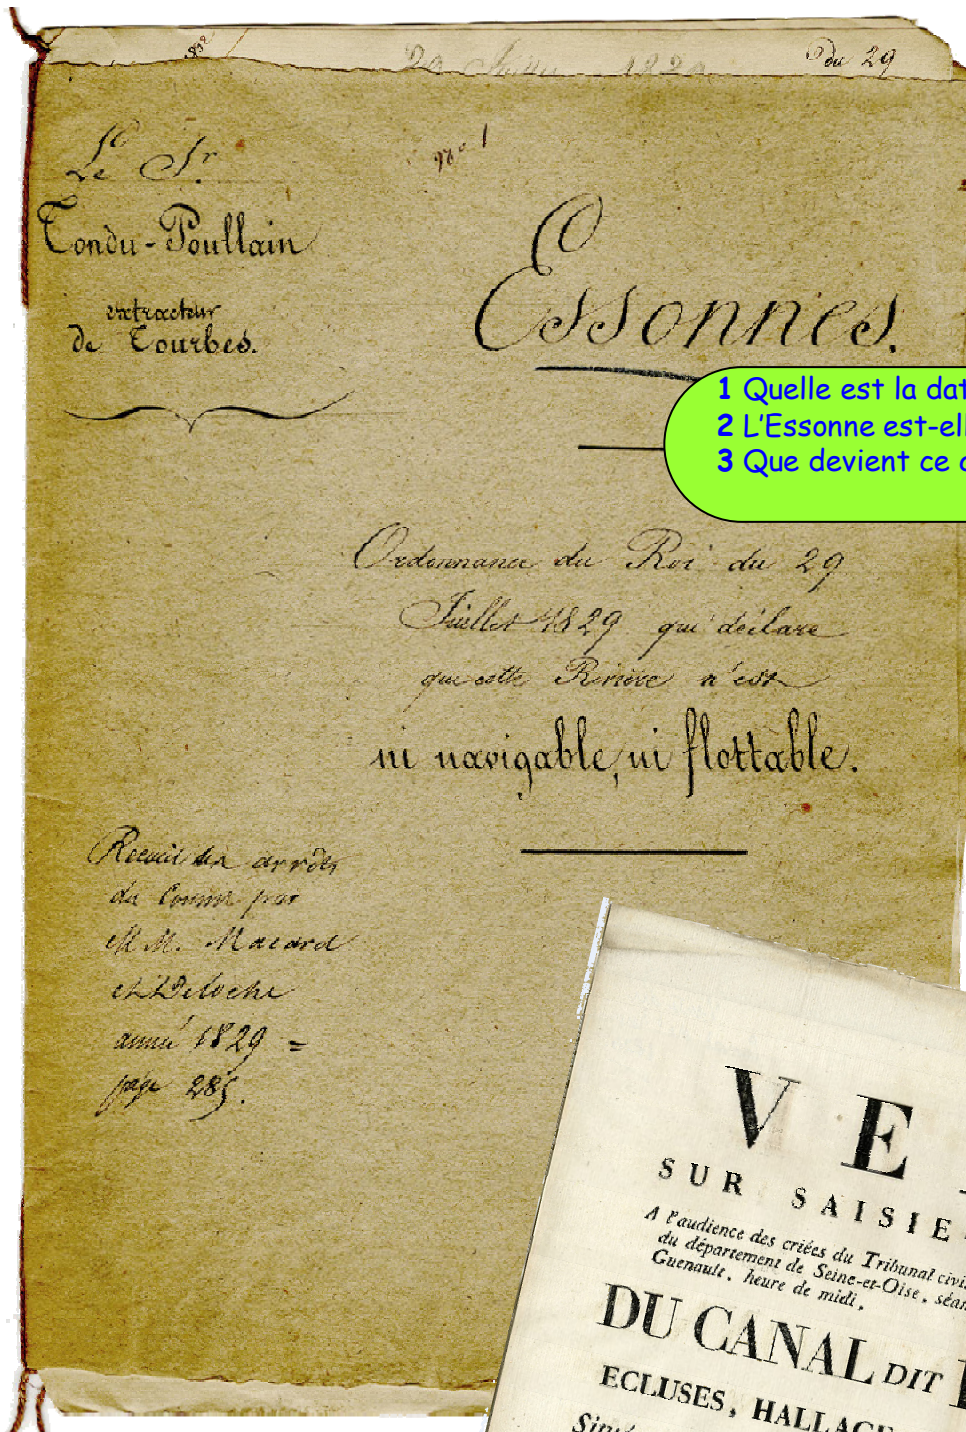 du 29
Le Sr.
Tondu-Poullain
extracteur
de Tourbes.
n° 1
Essonnes.
1 Quelle est la dat
2 L'Essonne est-ell
3 Que devient ce c
Ordonnance du Roi du 29
Juillet 1829 qui déclare
que cette Rivière n'est
ni navigable, ni flottable.
Recueil des arrêts
du Conseil par
MM. Macard
et Deloche
année 1829 =
page 285.
VE
SUR SAISIE
A l'audience des criées du Tribunal civi
du département de Seine-et-Oise, séan
Guenault, heure de midi,
DU CANAL DIT
ECLUSES, HALLAGE